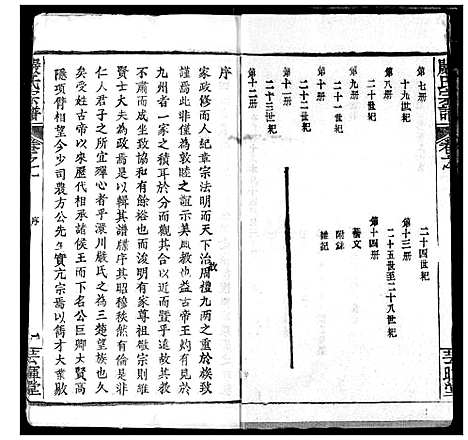 嚴氏宗譜
卷之一
第七册
十九世紀
第八册
二十世紀
第九册
二十一世紀
二十二世紀
第十二册
二十三世紀
二十四世紀
第十三册
二十五世至二十八世紀
第十四册
藝文
附錄
雜記
序
家政修而人紀章宗法明而天下治周禮九兩之
故
謹焉此非僅為敦睦之誼示美風教也益古帝王灼有見於
九州者一家之積耳於分而觀其合於
而暨乎遠故其教
不肅而成坐致協和有餘裕也而浚明有家尊祖敬宗則有
賢士大夫為政焉是以輯其譜牒序其昭穆秩然有倫是非
仁人君子之所宜殫心者乎灄川嚴氏之為三楚望族也久
矣受姓古帝以來歷代相承諸侯王而下名公巨卿大賢高
隱項背相望今少司農方公先生實亢宗焉以儁才大業敭
嚴氏宗譜
卷之一
序
一